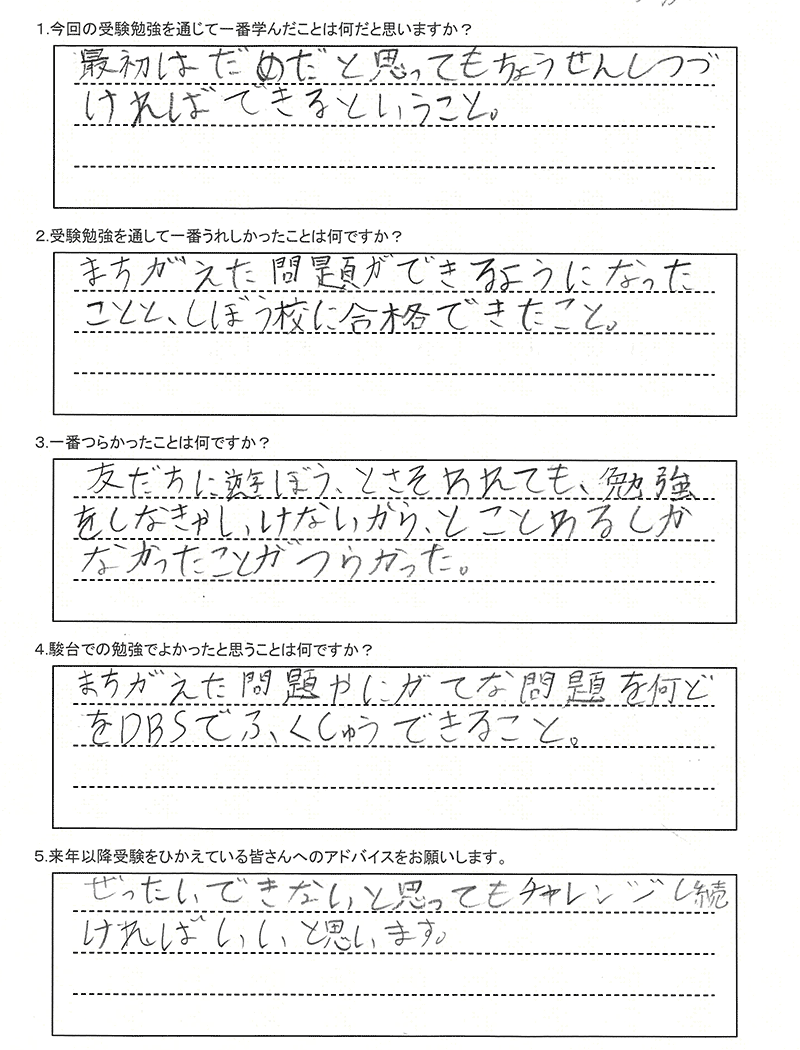 1.今回の受験勉強を通じて一番学んだことは何だと思いますか？
最初はだめだと思ってもちょうせんしつづ
ければできるということ。
2.受験勉強を通して一番うれしかったことは何ですか？
まちがえた問題ができるようになった
ことと、しぼう校に合格できたこと。
3.一番つらかったことは何ですか？
友だちに遊ぼう、とさそわれても、勉強
をしなきゃいけないから、とことわるしか
なかったことがつらかった。
4.駿台での勉強でよかったと思うことは何ですか？
まちがえた問題やにがてな問題を何ど
をDBSでふくしゅうできること。
5.来年以降受験をひかえている皆さんへのアドバイスをお願いします。
ぜったいできないと思ってもチャレンジし続
ければいいと思います。